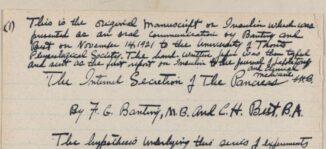 (1) This is the original Manuscript on Insulin which was
presented as an oral communication by Banting and
Best on November 14, 1921 to the University of Toronto
Physiological Society. The hand-written paper was then typed
and sent as the first report on Insulin to the journal of laboratory
and clinical
medicine
The Internal Secretion of The Pancreas
By F. G. Banting, M.B. and C. H. Best, B.A.
The hypothesis underlying this series of experiments